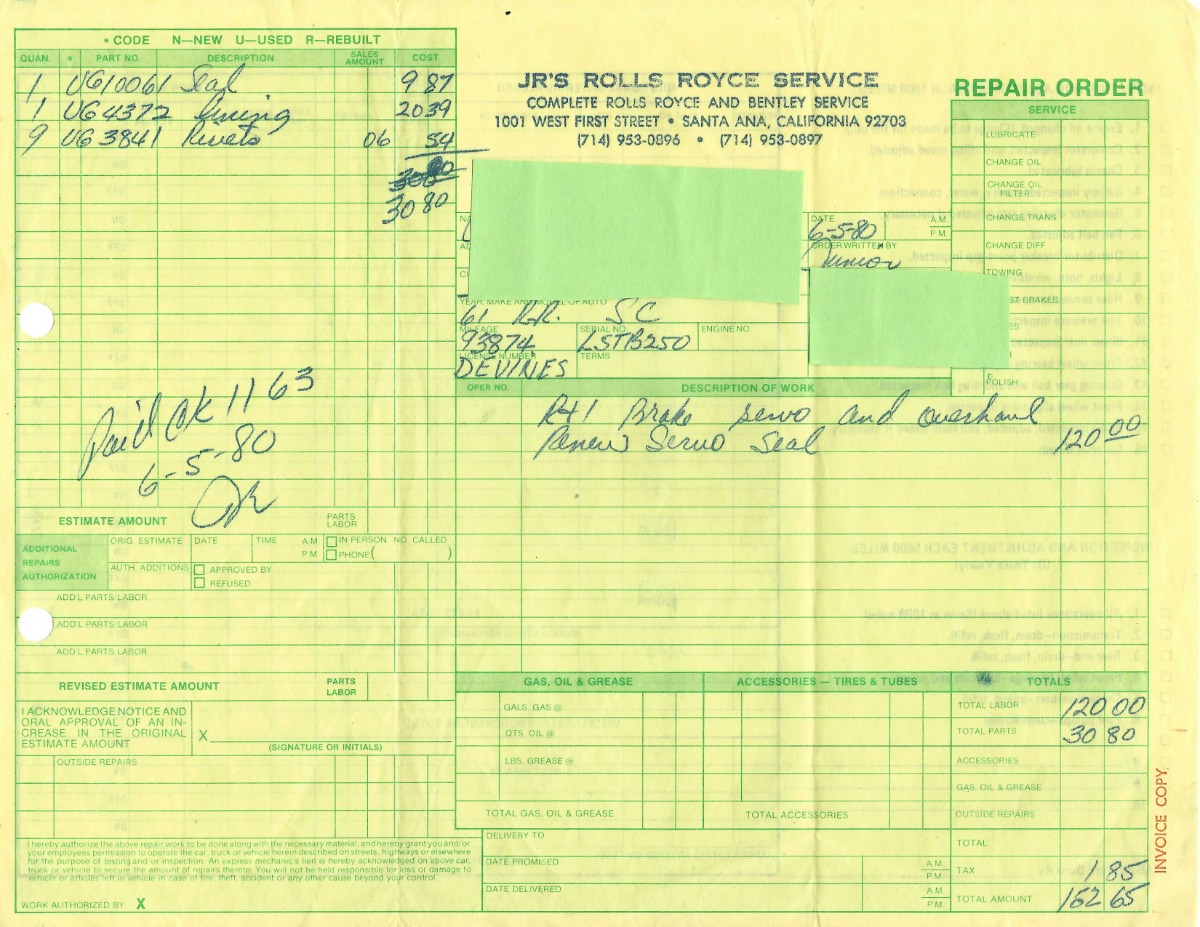 * CODE N—NEW U—USED R—REBUILT
QUAN. * PART NO. DESCRIPTION SALES AMOUNT COST
1 UG10061 Seal 9 87
1 UG4372 Lining 20 39
9 UG3841 Rivets 06 54
30 80
JR'S ROLLS ROYCE SERVICE
COMPLETE ROLLS ROYCE AND BENTLEY SERVICE
1001 WEST FIRST STREET • SANTA ANA, CALIFORNIA 92703
(714) 953-0896 • (714) 953-0897
REPAIR ORDER
SERVICE
LUBRICATE
CHANGE OIL
CHANGE OIL FILTER
CHANGE TRANS
CHANGE DIFF
TOWING
ST BRAKES
POLISH
DATE 6-5-80 A.M. P.M.
ORDER WRITTEN BY
Junior
YEAR, MAKE AND MODEL OF AUTO
61 R.R. SC
MILEAGE SERIAL NO. ENGINE NO.
93874 LSTB250
LICENSE NUMBER TERMS
DEVINES
OPER NO. DESCRIPTION OF WORK
R+I Brake servo and overhaul
Renew Servo Seal 120 00
Paid CK 1163
6-5-80
JR
ESTIMATE AMOUNT PARTS LABOR
ADDITIONAL REPAIRS AUTHORIZATION
ORIG. ESTIMATE DATE TIME A.M. P.M. IN PERSON NO. CALLED
PHONE ( )
AUTH. ADDITIONS APPROVED BY
REFUSED
ADD'L PARTS LABOR
ADD'L PARTS LABOR
ADD'L PARTS LABOR
REVISED ESTIMATE AMOUNT PARTS LABOR
I ACKNOWLEDGE NOTICE AND
ORAL APPROVAL OF AN IN-
CREASE IN THE ORIGINAL
ESTIMATE AMOUNT
X
(SIGNATURE OR INITIALS)
OUTSIDE REPAIRS
GAS, OIL & GREASE ACCESSORIES — TIRES & TUBES TOTALS
GALS. GAS @
QTS. OIL @
LBS. GREASE @
TOTAL GAS, OIL & GREASE TOTAL ACCESSORIES
TOTAL LABOR 120 00
TOTAL PARTS 30 80
ACCESSORIES
GAS, OIL & GREASE
OUTSIDE REPAIRS
TOTAL
TAX 1 85
TOTAL AMOUNT 152 65
I hereby authorize the above repair work to be done along with the necessary material, and hereby grant you and/or
your employees permission to operate the car, truck or vehicle herein described on streets, highways or elsewhere
for the purpose of testing and/or inspection. An express mechanic's lien is hereby acknowledged on above car,
truck or vehicle to secure the amount of repairs thereto. You will not be held responsible for loss or damage to
vehicle or articles left in vehicle in case of fire, theft, accident or any other cause beyond your control.
WORK AUTHORIZED BY X
DELIVERY TO
DATE PROMISED A.M. P.M.
DATE DELIVERED A.M. P.M.
INVOICE COPY